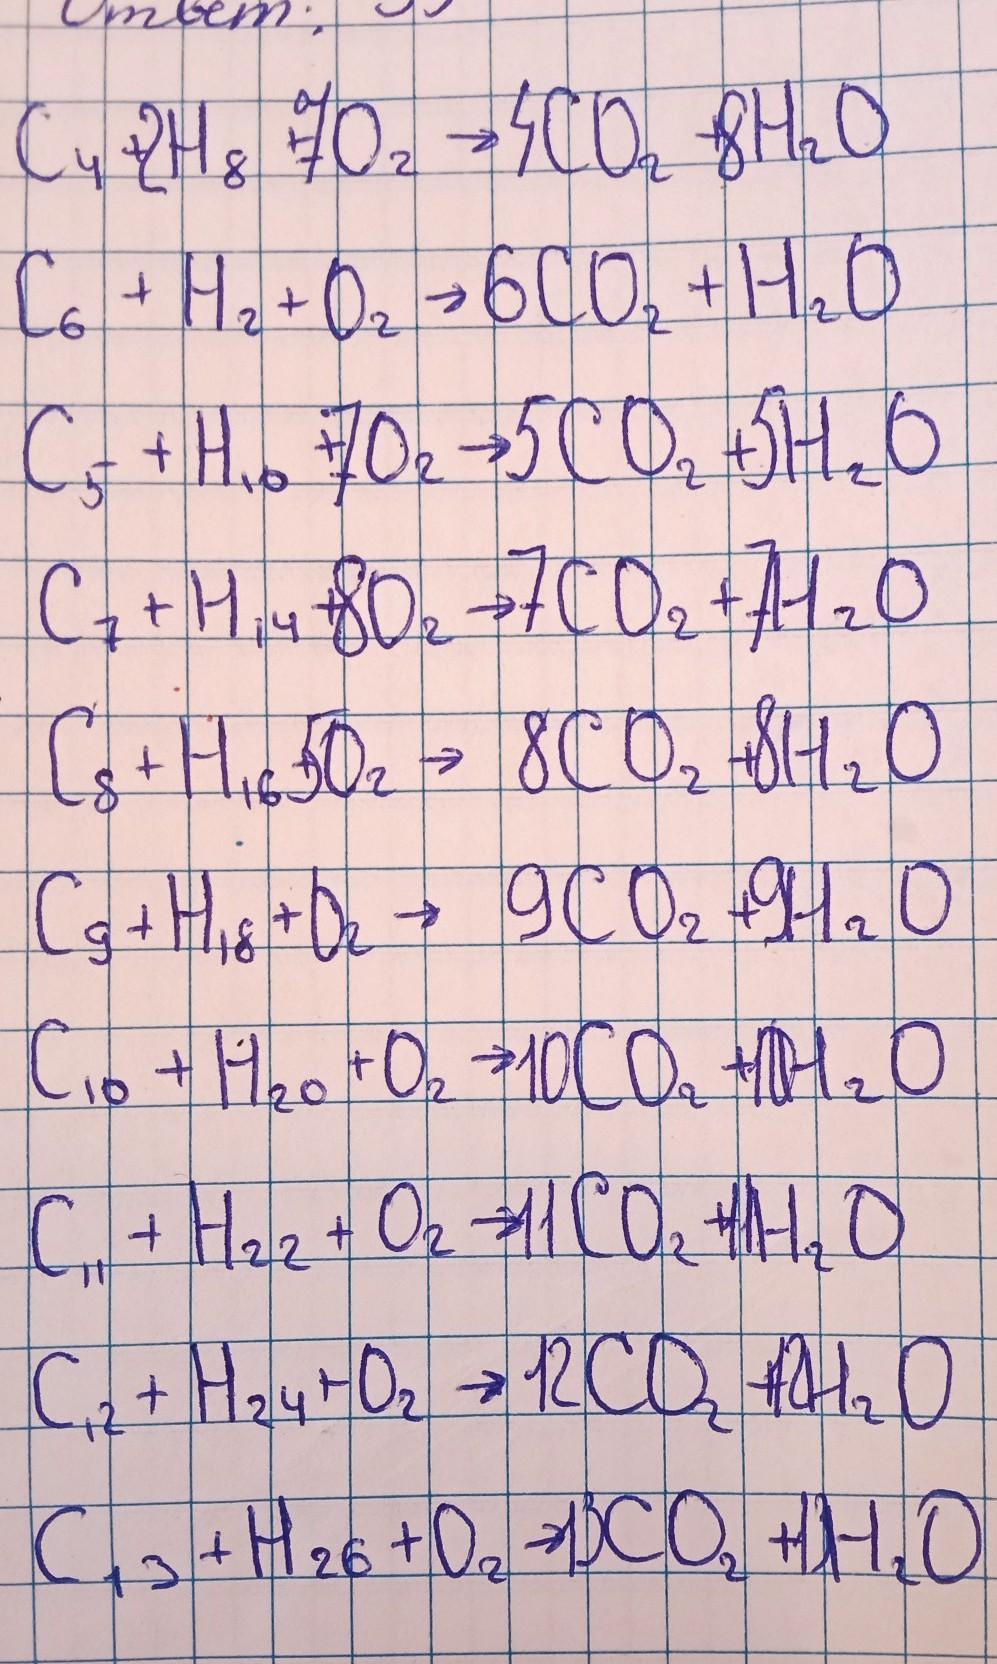 Ответ:
C₄ + 2H₈ + 7O₂ → 4CO₂ + 8H₂O
C₆ + H₂ + O₂ → 6CO₂ + H₂O
C₅ + H₁₀ + 7O₂ → 5CO₂ + 5H₂O
C₇ + H₁₄ + 8O₂ → 7CO₂ + 7H₂O
C₈ + H₁₆ + 5O₂ → 8CO₂ + 8H₂O
C₉ + H₁₈ + O₂ → 9CO₂ + 9H₂O
C₁₀ + H₂₀ + O₂ → 10CO₂ + 10H₂O
C₁₁ + H₂₂ + O₂ → 11CO₂ + 11H₂O
C₁₂ + H₂₄ + O₂ → 12CO₂ + 12H₂O
C₁₃ + H₂₆ + O₂ → 13CO₂ + 13H₂O